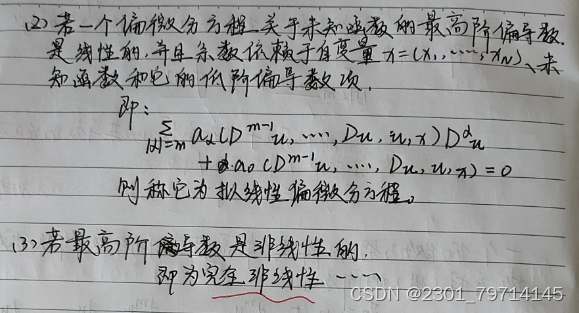 (2) 若一个偏微分方程关于未知函数的最高阶偏导数
是线性的,并且系数依赖于自变量x=(x₁,……,x_N)、未
知函数和它的低阶偏导数项,
即:
∑_{|α|=m} a_α(D^{m-1}u,……,Du,u,x)D^αu
+a₀(D^{m-1}u,……,Du,u,x)=0
则称它为拟线性偏微分方程。
(3) 若最高阶偏导数是非线性的,
即为完全非线性……
CSDN @2301_79714145